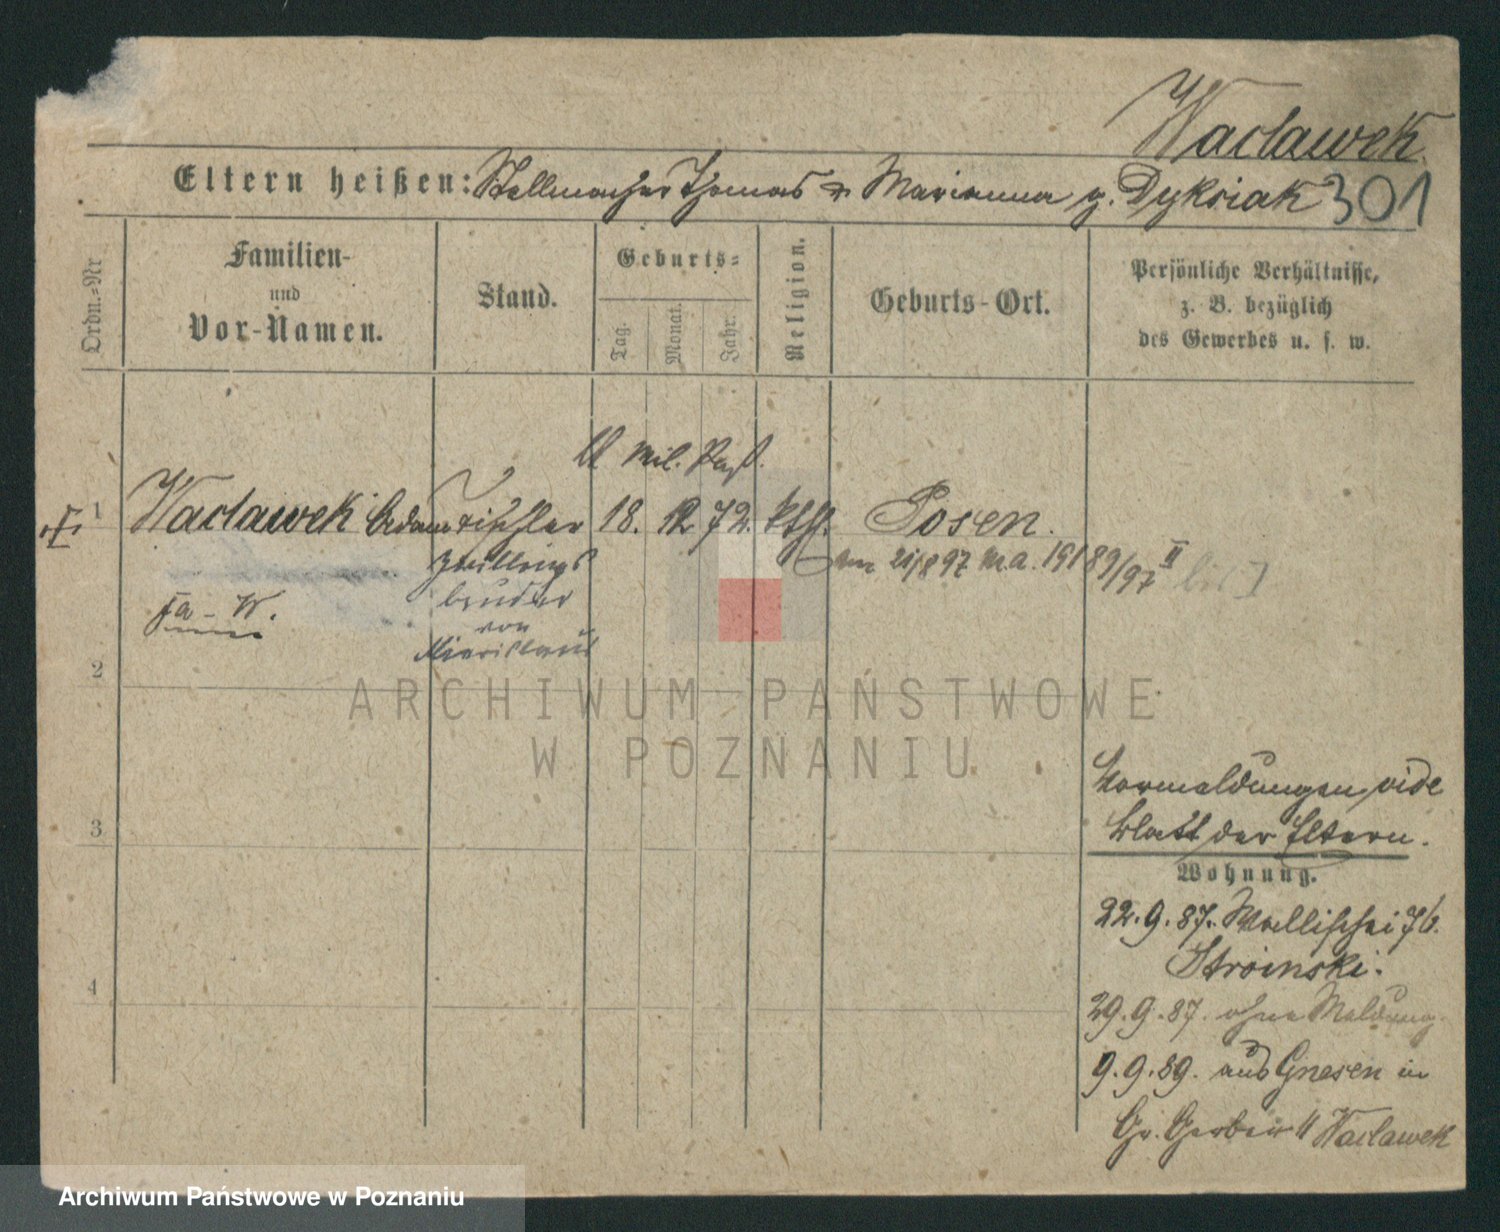 Waclawek
Eltern heißen: Stellmacher Thomas u Marianna g. Dyksiak 301
Ordn.-Nr
Familien-
und
Vor-Namen.
Stand.
Geburts-
Tag.
Monat.
Jahr.
Religion.
Geburts-Ort.
Persönliche Verhältnisse,
z. B. bezüglich
des Gewerbes u. s. w.
Mil. Paß.
1 Waclawek Adam Tischler 18. 12 72. kth. Posen.
Zwillings
bruder
von
Miecislaus
21/8 97 M.A. 191 89/97 II
2
ARCHIWUM PAŃSTWOWE
W POZNANIU
3
4
Vormeldungen vide
Blatt der Eltern.
Wohnung.
22.9.87. Wallischei 76.
Stroinski.
29.9.87. ohne Meldung.
9.9.89. aus Gnesen in
Gr. Gerber 11 Waclawek
Archiwum Państwowe w Poznaniu